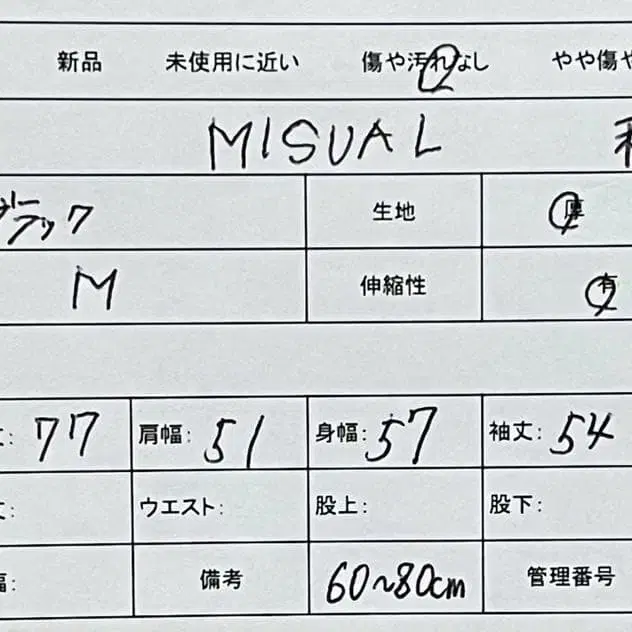 新品 未使用に近い 傷や汚れなし やや傷や
MISUAL
ブラック 生地 厚
M 伸縮性 有
丈: 77 肩幅: 51 身幅: 57 袖丈: 54
丈: ウエスト: 股上: 股下:
幅: 備考 60~80cm 管理番号